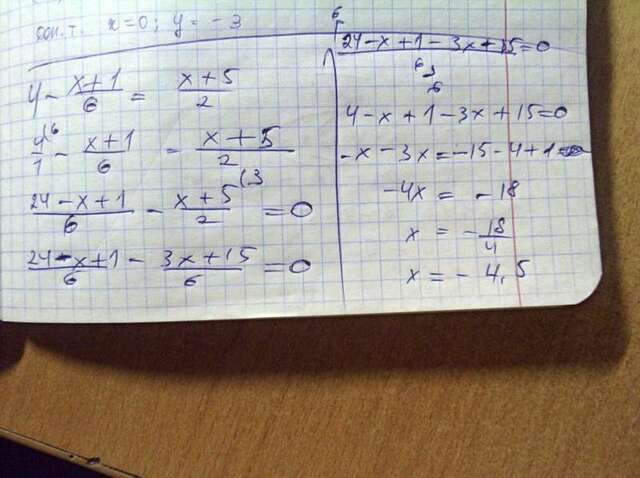 x=0; y= -3
4 - (x+1)/6 = (x+5)/2
4⁶/1 - (x+1)/6 - (x+5)/2
(3
(24-x+1)/6 - (x+5)/2 = 0
(24-x+1)/6 - (3x+15)/6 = 0
6
(24-x+1-3x+15)/6 = 0
6
4-x+1-3x+15=0
-x-3x=-15-4+1
-4x = -18
x = -18/4
x = -4,5